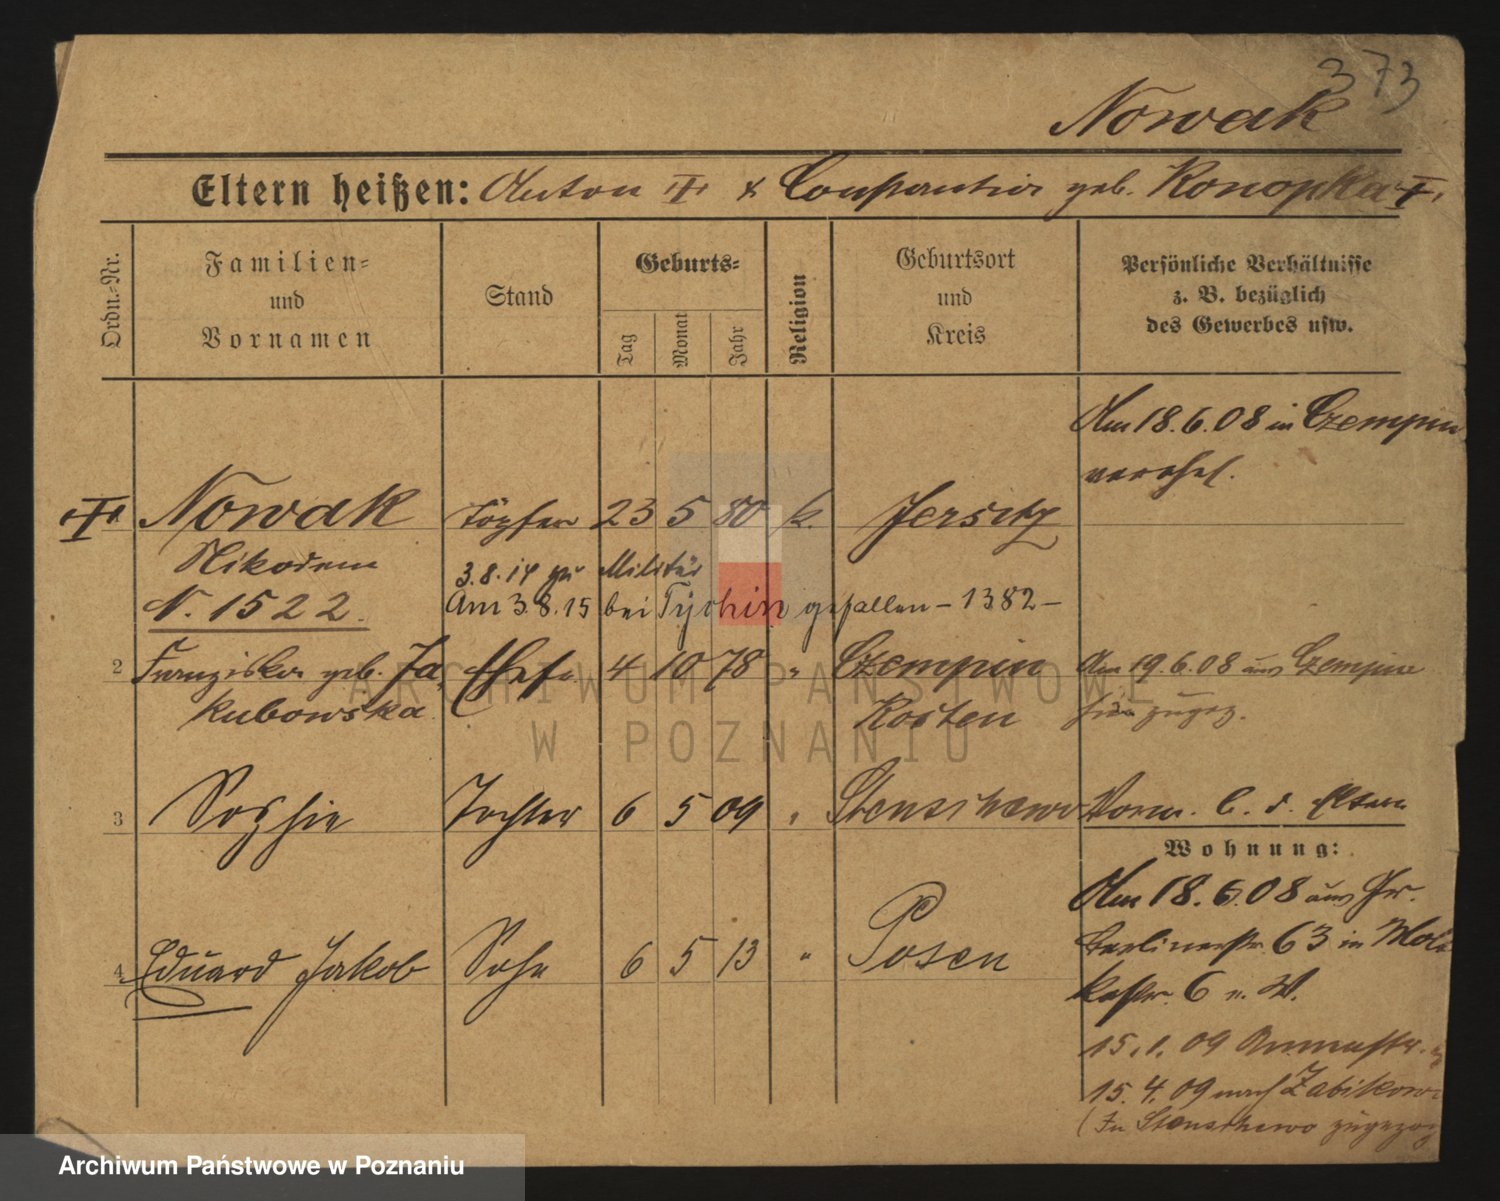 373
Nowak
Eltern heißen: Anton & Constantia geb. Konopka
Ordn.-Nr.
Familien-
und
Vornamen
Stand
Geburts-
Tag
Monat
Jahr
Religion
Geburtsort
und
Kreis
Persönliche Verhältnisse
z. B. bezüglich
des Gewerbes usw.
Am 18.6.08 in Czempin
verehel.
Nowak Töpfer 23 5 80 k. Jersitz
Nikodem
3.8.14 zu Militär
N. 1522.
Am 3.8.15 bei Tychin gefallen – 1382 –
2 Franziska geb. Ja Ehefr. 4 10 78 " Czempin
kubowska Kosten
Am 19.6.08 aus Czempin
hier zugez.
3 Sophie Tochter 6 5 09 " Stenschewo
Vorm. b. d. Eltern
Wohnung:
Am 18.6.08 aus Gr.
Berlinerstr. 63 in Molt
kestr. 6 n. W.
4 Eduard Jakob Sohn 6 5 13 " Posen
15.1.09
15.4.09 nach Zabikowo
(In Stenschewo zugezog
ARCHIWUM PAŃSTWOWE
W POZNANIU
Archiwum Państwowe w Poznaniu